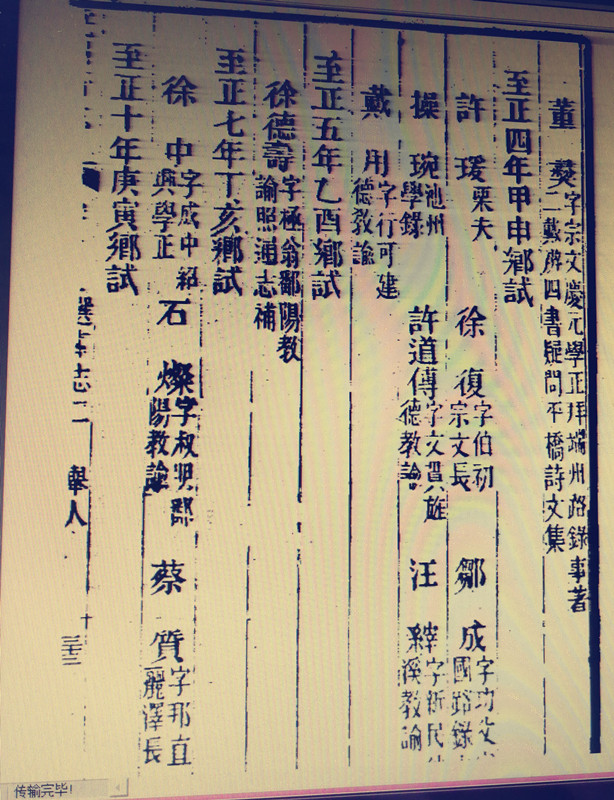 董 字宗文慶元學正拜端州路錄事著二戴辨四書疑問平橋詩文集
至正四年甲申鄉試
許瑗栗夫 徐復字伯初宗文長 鄒成字功父國路錄
操琬池州學錄 許道傳字文貫旌德教諭 汪 字新民溪教諭
戴用字行可建德教諭
至正五年乙酉鄉試
徐德壽字極翁鄱陽教諭照通志補
至正七年丁亥鄉試
徐中字成中紹興學正 石燦字叔明鄱陽教諭 蔡質字邦直麗澤長
至正十年庚寅鄉試
選舉志二 舉人 十
传输完毕!